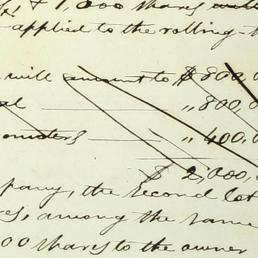 & 1,000 shares will
applied to the rolling-
will amount to $800,0
al " 800,0
" 400,0
$ 2,000,0
pany, the Second lot
es, among the same
00 shares to the owner